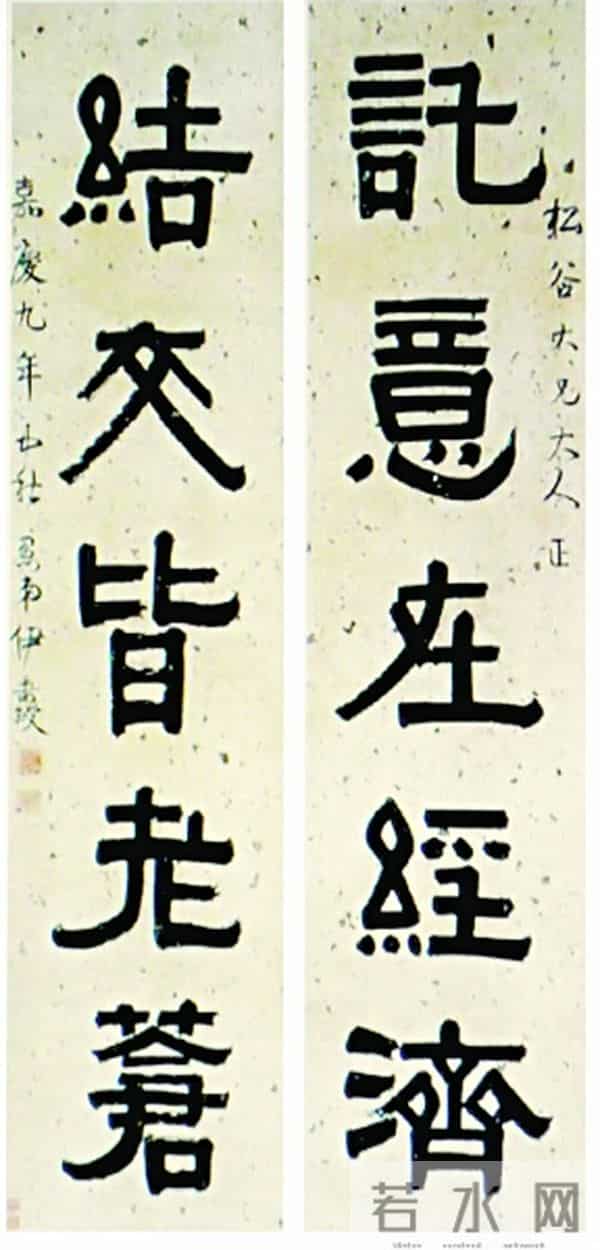 松谷大兄大人正
託意在經濟
結交皆老蒼
嘉慶九年秋愚弟伊秉綬
若水网